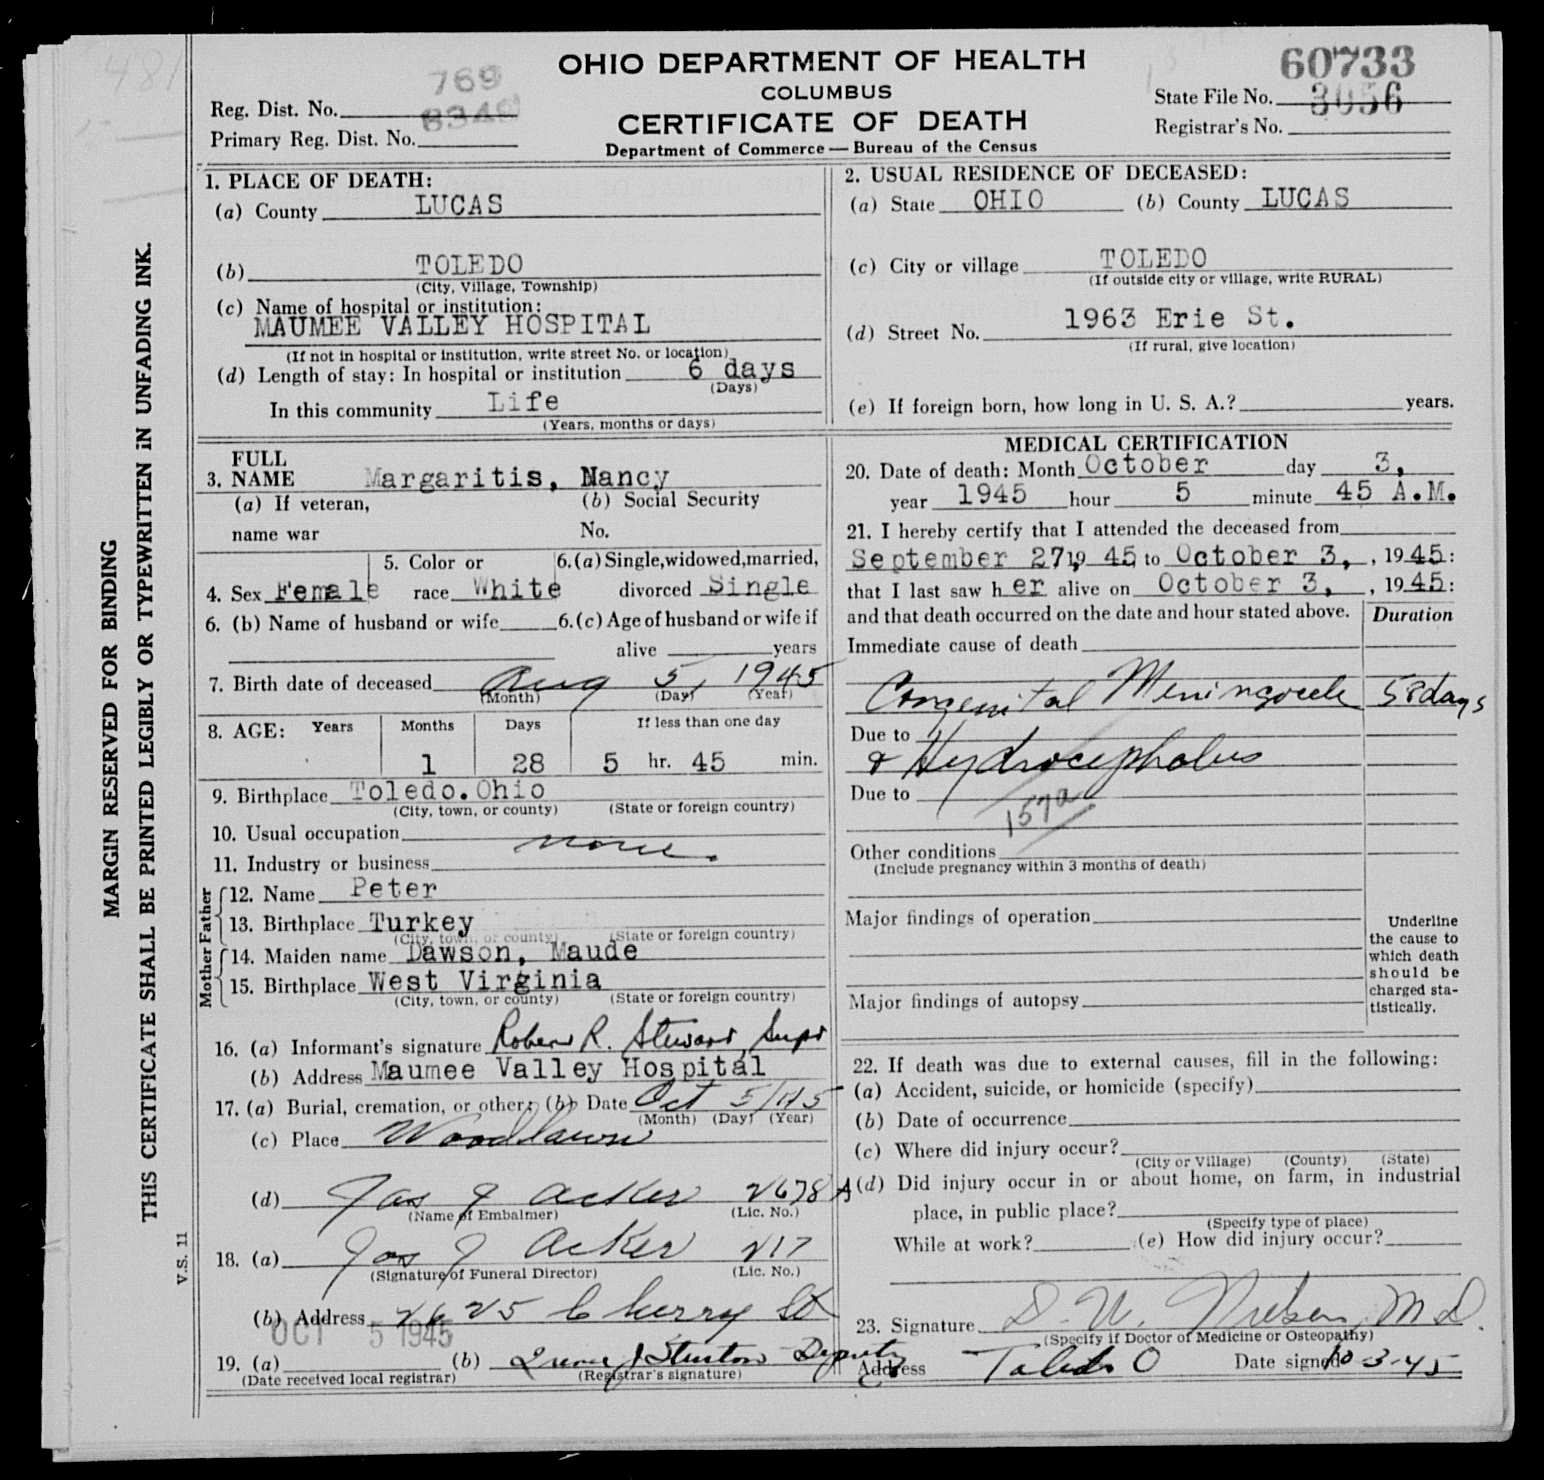 481
OHIO DEPARTMENT OF HEALTH
COLUMBUS
CERTIFICATE OF DEATH
Department of Commerce — Bureau of the Census
769
Reg. Dist. No. 8349
Primary Reg. Dist. No.
60733
State File No. 3056
Registrar's No.
MARGIN RESERVED FOR BINDING
THIS CERTIFICATE SHALL BE PRINTED LEGIBLY OR TYPEWRITTEN IN UNFADING INK.
V.S. 11
1. PLACE OF DEATH:
(a) County LUCAS
(b) TOLEDO
(City, Village, Township)
(c) Name of hospital or institution:
MAUMEE VALLEY HOSPITAL
(If not in hospital or institution, write street No. or location)
(d) Length of stay: In hospital or institution 6 days
(Days)
In this community Life
(Years, months or days)
2. USUAL RESIDENCE OF DECEASED:
(a) State OHIO (b) County LUCAS
(c) City or village TOLEDO
(If outside city or village, write RURAL)
(d) Street No. 1963 Erie St.
(If rural, give location)
(e) If foreign born, how long in U. S. A.? years.
3. FULL NAME Margaritis, Nancy
(a) If veteran, (b) Social Security
name war No.
4. Sex Female 5. Color or race White 6.(a) Single, widowed, married, divorced Single
6. (b) Name of husband or wife 6.(c) Age of husband or wife if
alive years
7. Birth date of deceased Aug 5, 1945
(Month) (Day) (Year)
8. AGE: Years Months Days If less than one day
1 28 5 hr. 45 min.
9. Birthplace Toledo.Ohio
(City, town, or county) (State or foreign country)
10. Usual occupation none.
11. Industry or business
Father
12. Name Peter
13. Birthplace Turkey
(City, town, or county) (State or foreign country)
Mother
14. Maiden name Dawson, Maude
15. Birthplace West Virginia
(City, town, or county) (State or foreign country)
16. (a) Informant's signature Robert R. Stewart, Supt
(b) Address Maumee Valley Hospital
17. (a) Burial, cremation, or other; (b) Date Oct 5/45
(Month) (Day) (Year)
(c) Place Woodlawn
(d) Jas J Acker 2678A
(Name of Embalmer) (Lic. No.)
18. (a) Jas J Acker 217
(Signature of Funeral Director) (Lic. No.)
(b) Address 2625 Cherry St
OCT 5 1945
19. (a) (b) Deputy
(Date received local registrar) (Registrar's signature)
MEDICAL CERTIFICATION
20. Date of death: Month October day 3,
year 1945 hour 5 minute 45 A.M.
21. I hereby certify that I attended the deceased from
September 27, 19 45 to October 3, , 1945:
that I last saw her alive on October 3, , 1945:
and that death occurred on the date and hour stated above.
Duration
Immediate cause of death
Congenital Meningocele 58 days
Due to
& Hydrocephalus
Due to
157a
Other conditions
(Include pregnancy within 3 months of death)
Major findings of operation
Major findings of autopsy
Underline
the cause to
which death
should be
charged sta-
tistically.
22. If death was due to external causes, fill in the following:
(a) Accident, suicide, or homicide (specify)
(b) Date of occurrence
(c) Where did injury occur?
(City or Village) (County) (State)
(d) Did injury occur in or about home, on farm, in industrial
place, in public place?
(Specify type of place)
While at work? (e) How did injury occur?
23. Signature D. W. M.D.
(Specify if Doctor of Medicine or Osteopathy)
Address Toledo O Date signed 10-3-45